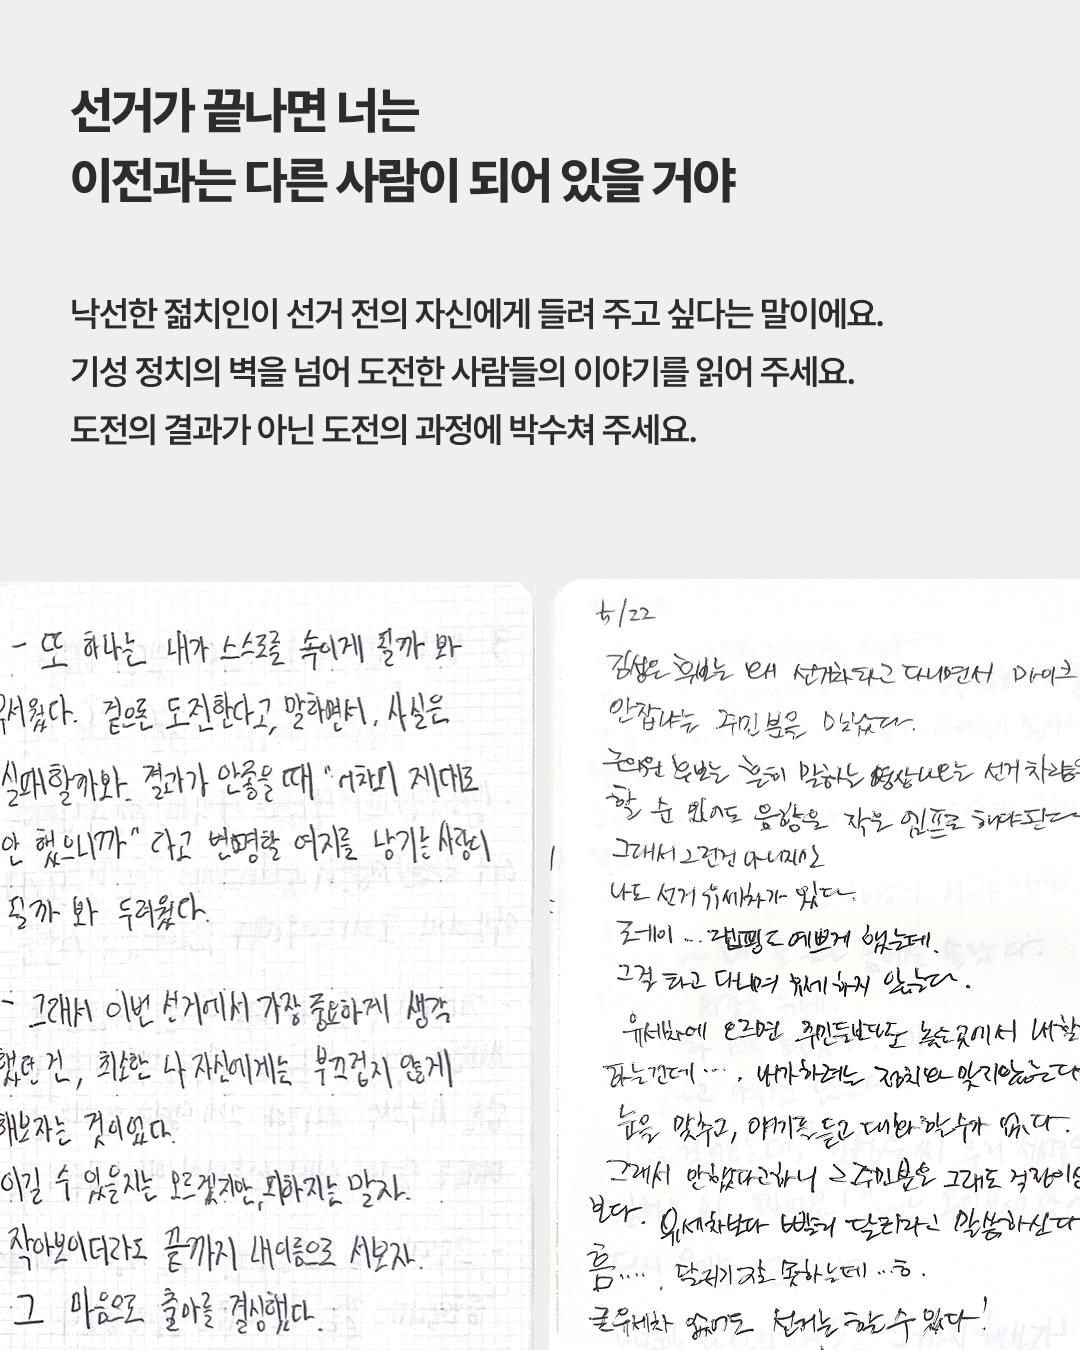 선거가 끝나면 너는
이전과는 다른 사람이 되어 있을 거야
낙선한 젊치인이 선거 전의 자신에게 들려 주고 싶다는 말이에요.
기성 정치의 벽을 넘어 도전한 사람들의 이야기를 읽어 주세요.
도전의 결과가 아닌 도전의 과정에 박수쳐 주세요.
- 또 하나는 내가 스스로를 속이게 될까 봐
서웠다. 겉으론 도전한다고 말하면서, 사실은
실패할까봐. 결과가 안좋을 때 "어차피 제대로
안 했으니까" 라고 변명할 여지를 남기는 사람이
될까 봐 두려웠다.
- 그래서 이번 선거에서 가장 중요하게 생각
했던 건, 최소한 나 자신에게는 부끄럽지 않게
해보자는 것이었다.
이길 수 있을지는 모르겠지만, 피하지는 말자.
작아보이더라도 끝까지 내 이름으로 서보자.
그 마음으로 출마를 결심했다.
5/22
후보는 왜 선거하라고 다니면서 마이크
안잡냐는 주민분을 만났다.
후보는 흔히 말하는 선거차량을
할 순 없어도 음향을 작은 앰프로 해야된다
그래서 그런건 아니지만
나도 선거 유세차가 있다.
랩핑도 예쁘게 했는데.
그걸 타고 다니며 유세하지 않는다.
유세차에 오르면 주민들보다 높은곳에서 내할
하는건데 .... , 내가하려는 정치와 맞지않는다
눈을 맞추고, 얘기를 듣고 대화 할수가 없다.
그래서 안했다고하니 그 주민분은 그래도 걱정이셨
보다. 유세차보다 빨리 달리라고 말씀하신다
흠.... , 달리기 잘 못하는데 ..ㅎ.
유세차 없어도 선거는 할 수 있다!